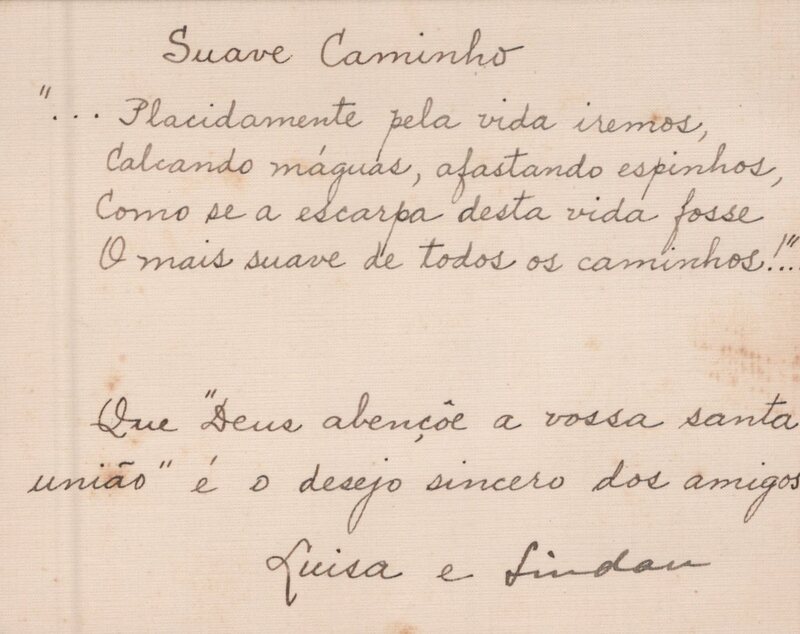 Suave Caminho
"... Placidamente pela vida iremos,
Calcando máguas, afastando espinhos,
Como se a escarpa desta vida fosse
O mais suave de todos os caminhos!"...
Que "Deus abençõe a vossa santa
união" é o desejo sincero dos amigos
Luisa e